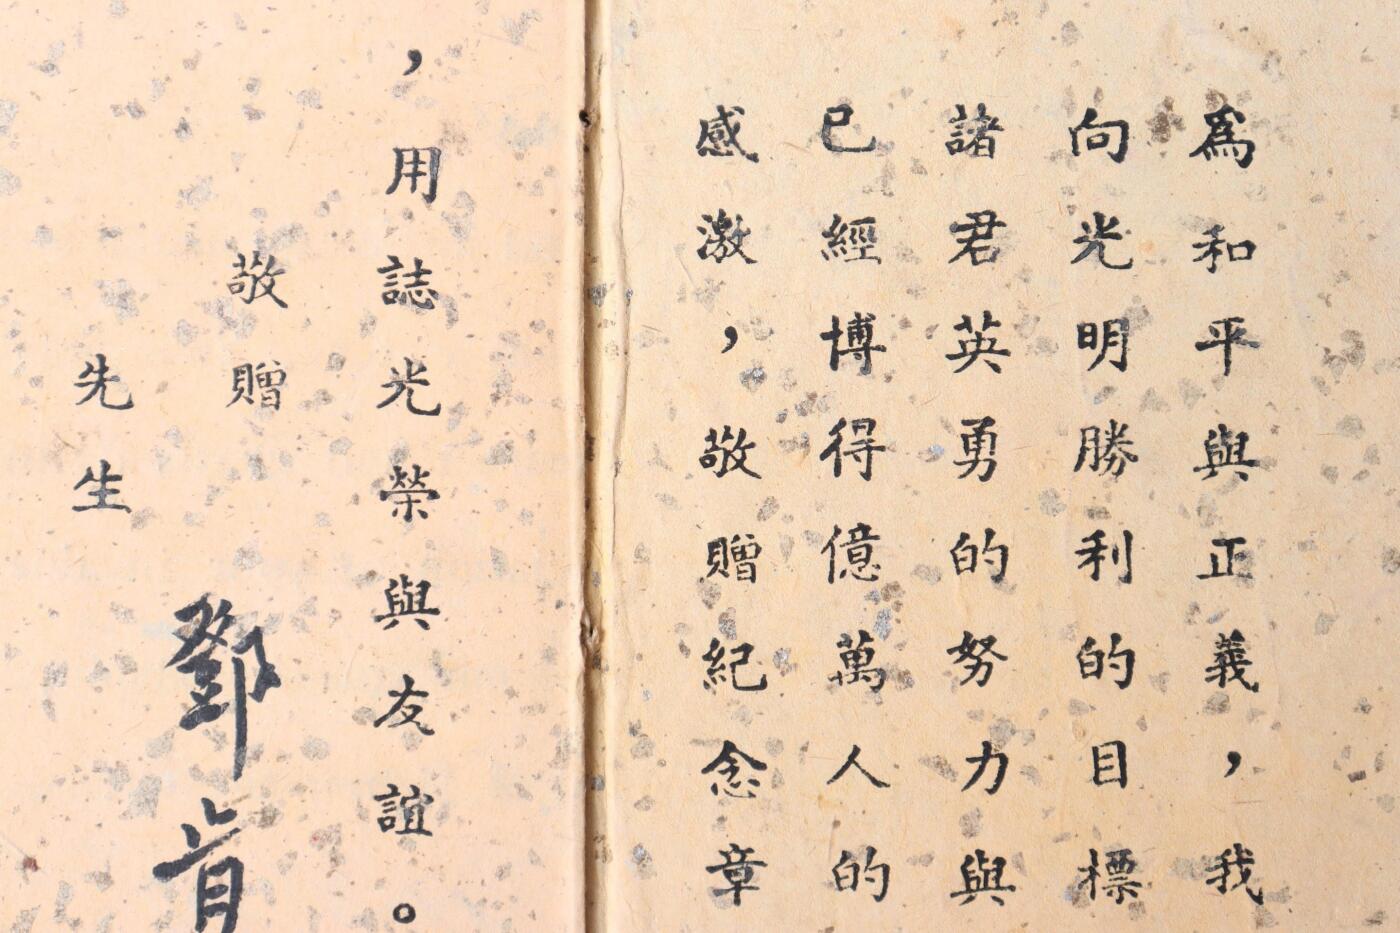 爲和平與正義，我
向光明勝利的目標
諸君英勇的努力與
已經博得億萬人的
感激，敬贈紀念章
，用誌光榮與友誼。
敬贈
鄧肯
先生